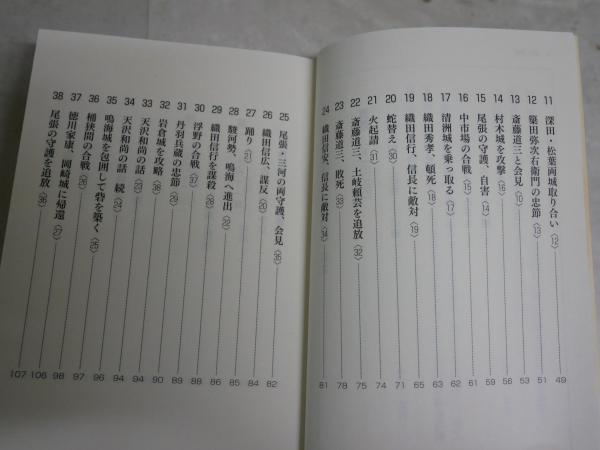 11 深田・松葉両城取り合い〈12〉 49
12 簗田弥次右衛門の忠節〈13〉 51
13 斎藤道三と会見〈10〉 53
14 村木城を攻撃〈16〉 56
15 尾張の守護、自害〈14〉 59
16 中市場の合戦〈15〉 61
17 清洲城を乗っ取る〈17〉 62
18 織田秀孝、頓死〈18〉 63
19 織田信行、信長に敵対〈19〉 65
20 蛇替え〈30〉 71
21 火起請〈31〉 74
22 斎藤道三、土岐頼芸を追放〈32〉 75
23 斎藤道三、敗死〈33〉 78
24 織田信安、信長に敵対〈34〉 81
25 尾張・三河の両守護、会見〈35〉 82
26 織田信広、謀反〈20〉 84
27 踊り〈21〉 85
28 駿河勢、鳴海へ進出〈22〉 86
29 織田信行を謀殺〈28〉 88
30 浮野の合戦〈37〉 89
31 丹羽兵蔵の忠節〈29〉 89
32 岩倉城を攻略〈38〉 90
33 天沢和尚の話〈23〉 94
34 天沢和尚の話 続〈24〉 94
35 鳴海城を包囲して砦を築く〈25〉 96
36 桶狭間の合戦〈26〉 97
37 徳川家康、岡崎城に帰還〈27〉 98
38 尾張の守護を追放〈36〉 106
107